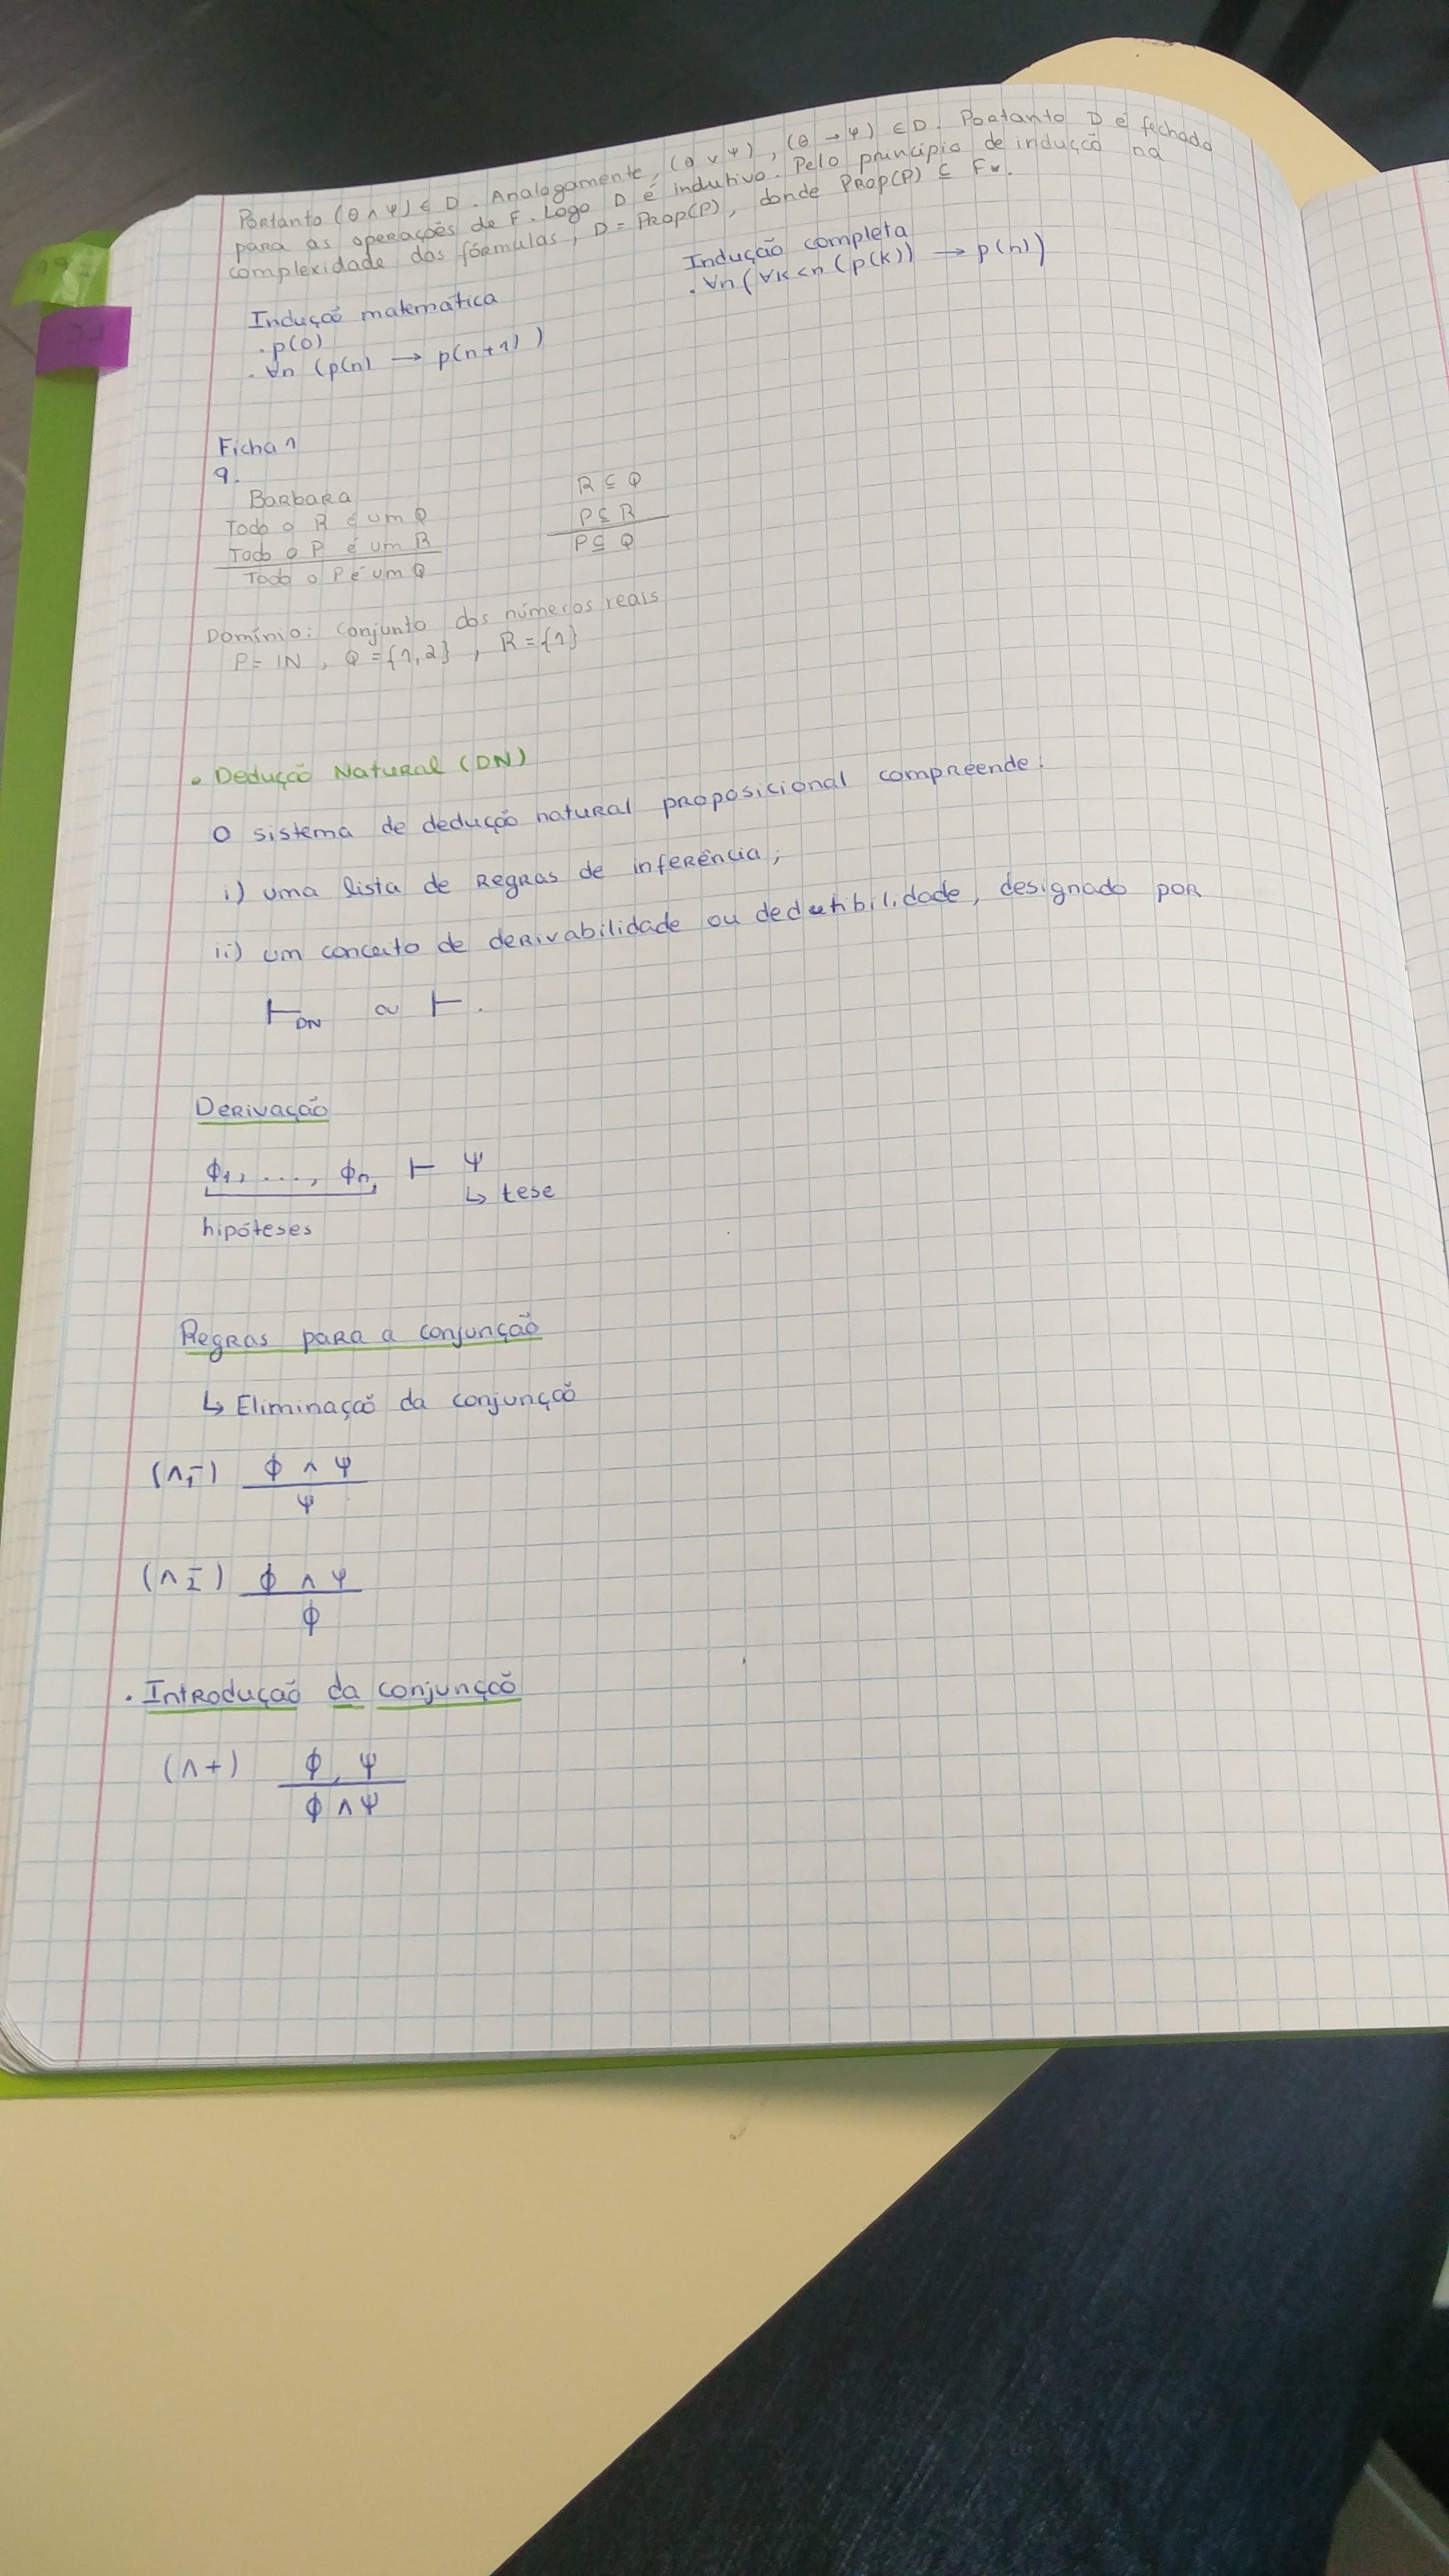 Portanto (θ ∧ ψ) ∈ D. Analogamente, (θ ∨ ψ), (θ → ψ) ∈ D. Portanto D é fechado
para as operações de F. Logo D é indutivo. Pelo princípio de indução na
complexidade das fórmulas, D = PROP(P), donde PROP(P) ⊆ F*.
Indução matemática
. p(0)
. ∀n (p(n) → p(n+1))
Indução completa
. ∀n (∀k<n (p(k)) → p(n))
Ficha 1
9.
Barbara
Todo o R é um Q
Todo o P é um R
Todo o P é um Q
R ⊆ Q
P ⊆ R
P ⊆ Q
Domínio: conjunto dos números reais
P = IN, Q = {1,2}, R = {1}
• Dedução Natural (DN)
O sistema de dedução natural proposicional compreende:
i) uma lista de regras de inferência;
ii) um conceito de derivabilidade ou dedutibilidade, designado por
⊢DN ou ⊢.
Derivação
ϕ1, ..., ϕn, ⊢ ψ
↳ tese
hipóteses
Regras para a conjunção
↳ Eliminação da conjunção
(∧1⁻) ϕ ∧ ψ
ψ
(∧2⁻) ϕ ∧ ψ
ϕ
. Introdução da conjunção
(∧+) ϕ, ψ
ϕ ∧ ψ